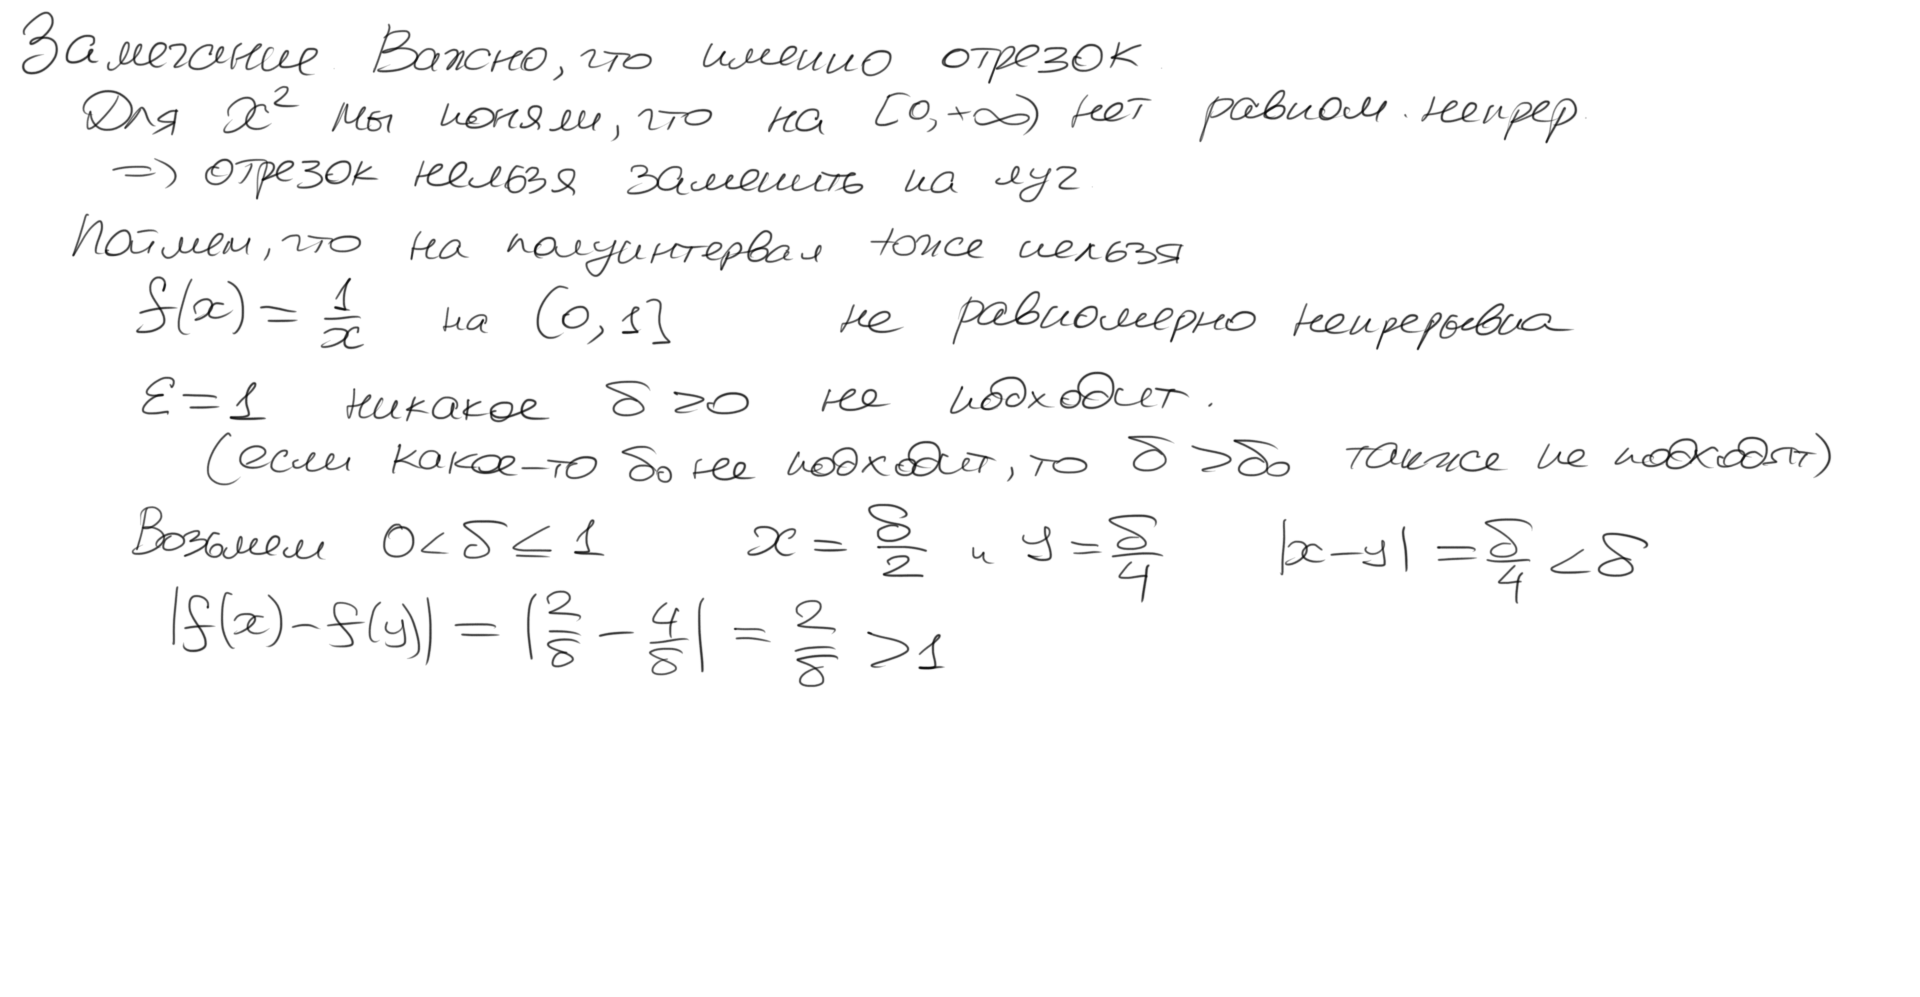 Замечание Важно, что именно отрезок
Для x² мы поняли, что на [0, +∞) нет равном. непрер.
=> отрезок нельзя заменить на луч
Поймем, что на полуинтервал тоже нельзя
f(x) = 1/x на (0, 1] не равномерно непрерывна
ε = 1 никакое δ > 0 не подходит.
(если какое-то δ₀ не подходит, то δ > δ₀ также не подходят)
Возьмем 0 < δ ≤ 1 x = δ/2 и y = δ/4 |x – y| = δ/4 < δ
|f(x) – f(y)| = |2/δ – 4/δ| = 2/δ > 1